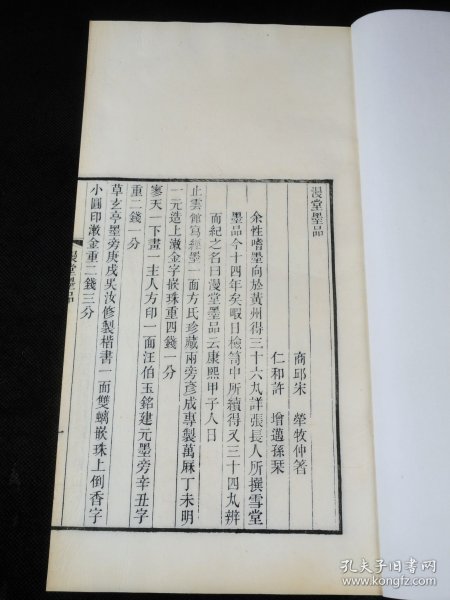 漫堂墨品
商邱宋 犖牧仲著
仁和許 增邁孫栞
余性嗜墨向於黃州得三十六丸詳張長人所撰雪堂
墨品今十四年矣暇日檢笥中所續得又三十四丸辨
而紀之名曰漫堂墨品云康熙甲子人日
止雲館寫經墨一面方氏珍藏兩旁彥成專製萬厤丁未明
一元造上漱金字嵌珠重四錢一分
寥天一下畫一主人方印一面汪伯玉銘建元墨旁辛丑字
重二錢一分
草玄亭墨旁庚戌吳汝修製楷書一面雙螭嵌珠上倒香字
小圓印漱金重二錢三分
漫堂墨品
一
孔夫子旧书网
www.kongfz.com